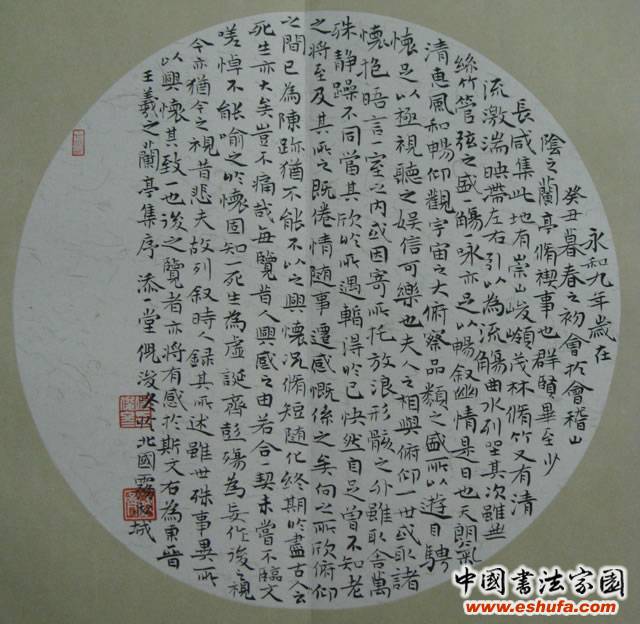 永和九年歲在
癸丑暮春之初會於會稽山
陰之蘭亭脩禊事也群賢畢至少
長咸集此地有崇山峻嶺茂林脩竹又有清
流激湍映帶左右引以為流觴曲水列坐其次雖無
絲竹管弦之盛一觴一詠亦足以暢敘幽情是日也天朗氣
清惠風和暢仰觀宇宙之大俯察品類之盛所以遊目騁
懷足以極視聽之娛信可樂也夫人之相與俯仰一世或取諸
懷抱晤言一室之內或因寄所托放浪形骸之外雖取舍萬
殊靜躁不同當其欣於所遇暫得於己快然自足曾不知老
之將至及其所之既倦情隨事遷感慨係之矣向之所欣俯仰
之間已為陳跡猶不能不以之興懷況脩短隨化終期於盡古人云
死生亦大矣豈不痛哉每覽昔人興感之由若合一契未嘗不臨文
嗟悼不能喻之於懷固知一死生為虛誕齊彭殤為妄作後之視
今亦猶今之視昔悲夫故列敘時人錄其所述雖世殊事異所
以興懷其致一也後之覽者亦將有感於斯文右為東晉
王羲之蘭亭集序 添一堂 浚冬於北國霧凇城
中國书法家园
www.eshufa.com